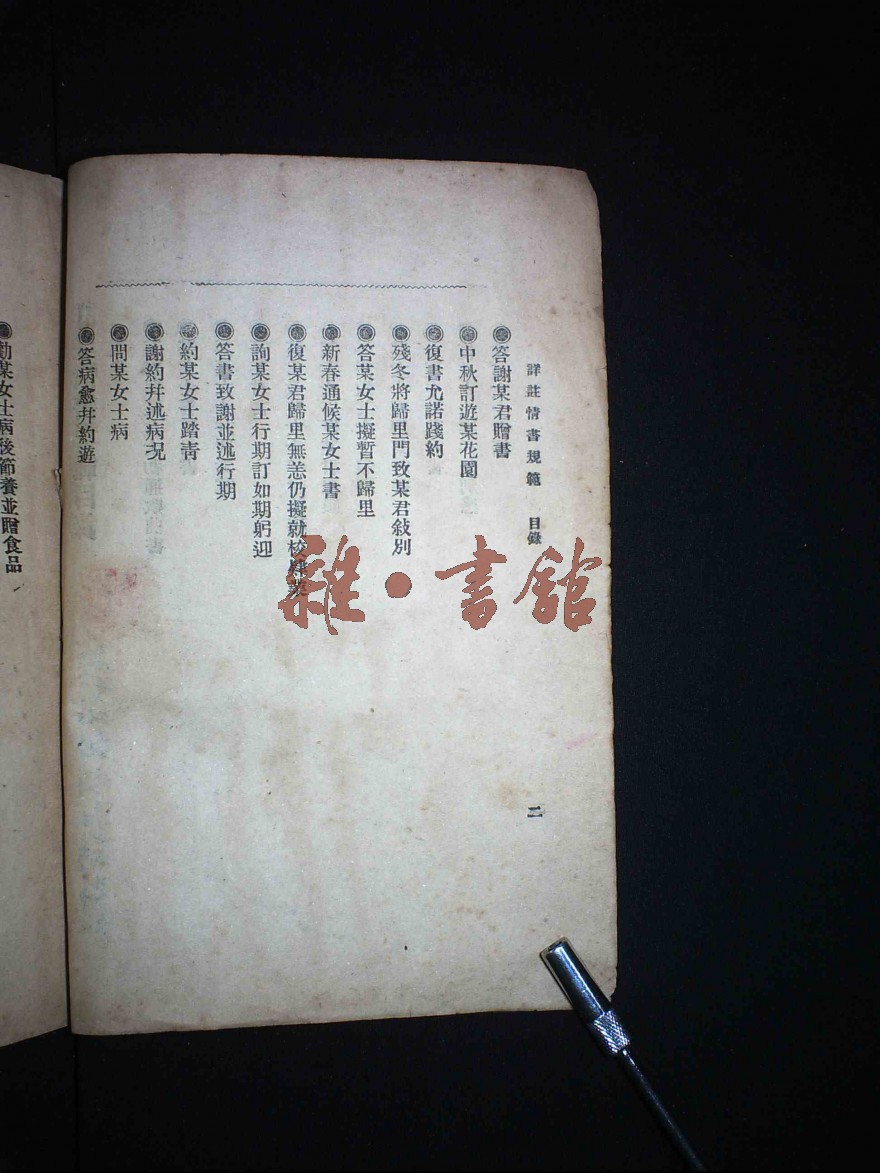 詳註情書規範 目錄
二
答謝某君贈書
中秋訂遊某花園
復書尤諾踐約
殘冬將歸里門致某君敍別
答某女士擬暫不歸里
新春通候某女士書
復某君歸里無恙仍擬就校肄業
詢某女士行期訂如期躬迎
答書致謝並述行期
約某女士踏靑
謝約幷述病况
問某女士病
答病愈幷約遊
勸某女士病後節養並贈食品
雜·書館